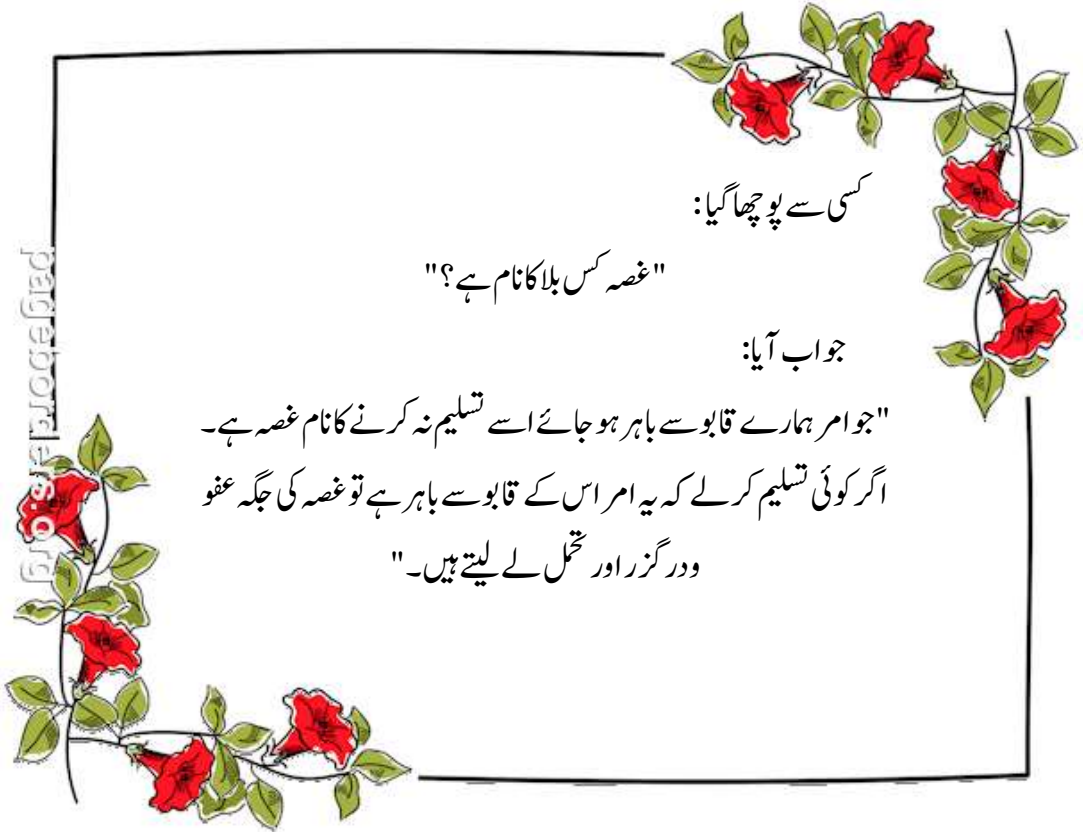 کسی سے پوچھا گیا:
"غصہ کس بلا کا نام ہے؟"
جواب آیا:
"جو امر ہمارے قابو سے باہر ہو جائے اسے تسلیم نہ کرنے کا نام غصہ ہے۔
اگر کوئی تسلیم کر لے کہ یہ امر اس کے قابو سے باہر ہے تو غصہ کی جگہ عفو
ودر گزر اور تحمل لے لیتے ہیں۔"
pageborders.org